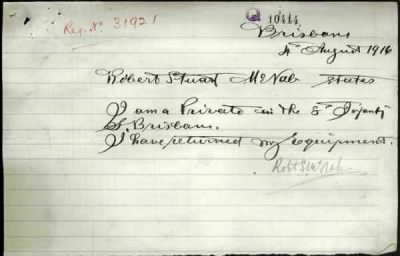 Reg. No 31921
10414
Brisbane
4th August 1916
Robert Stuart McNab states
I am a Private in the 8th Infantry
S. Brisbane.
I have returned my Equipment.
Robt S McNab